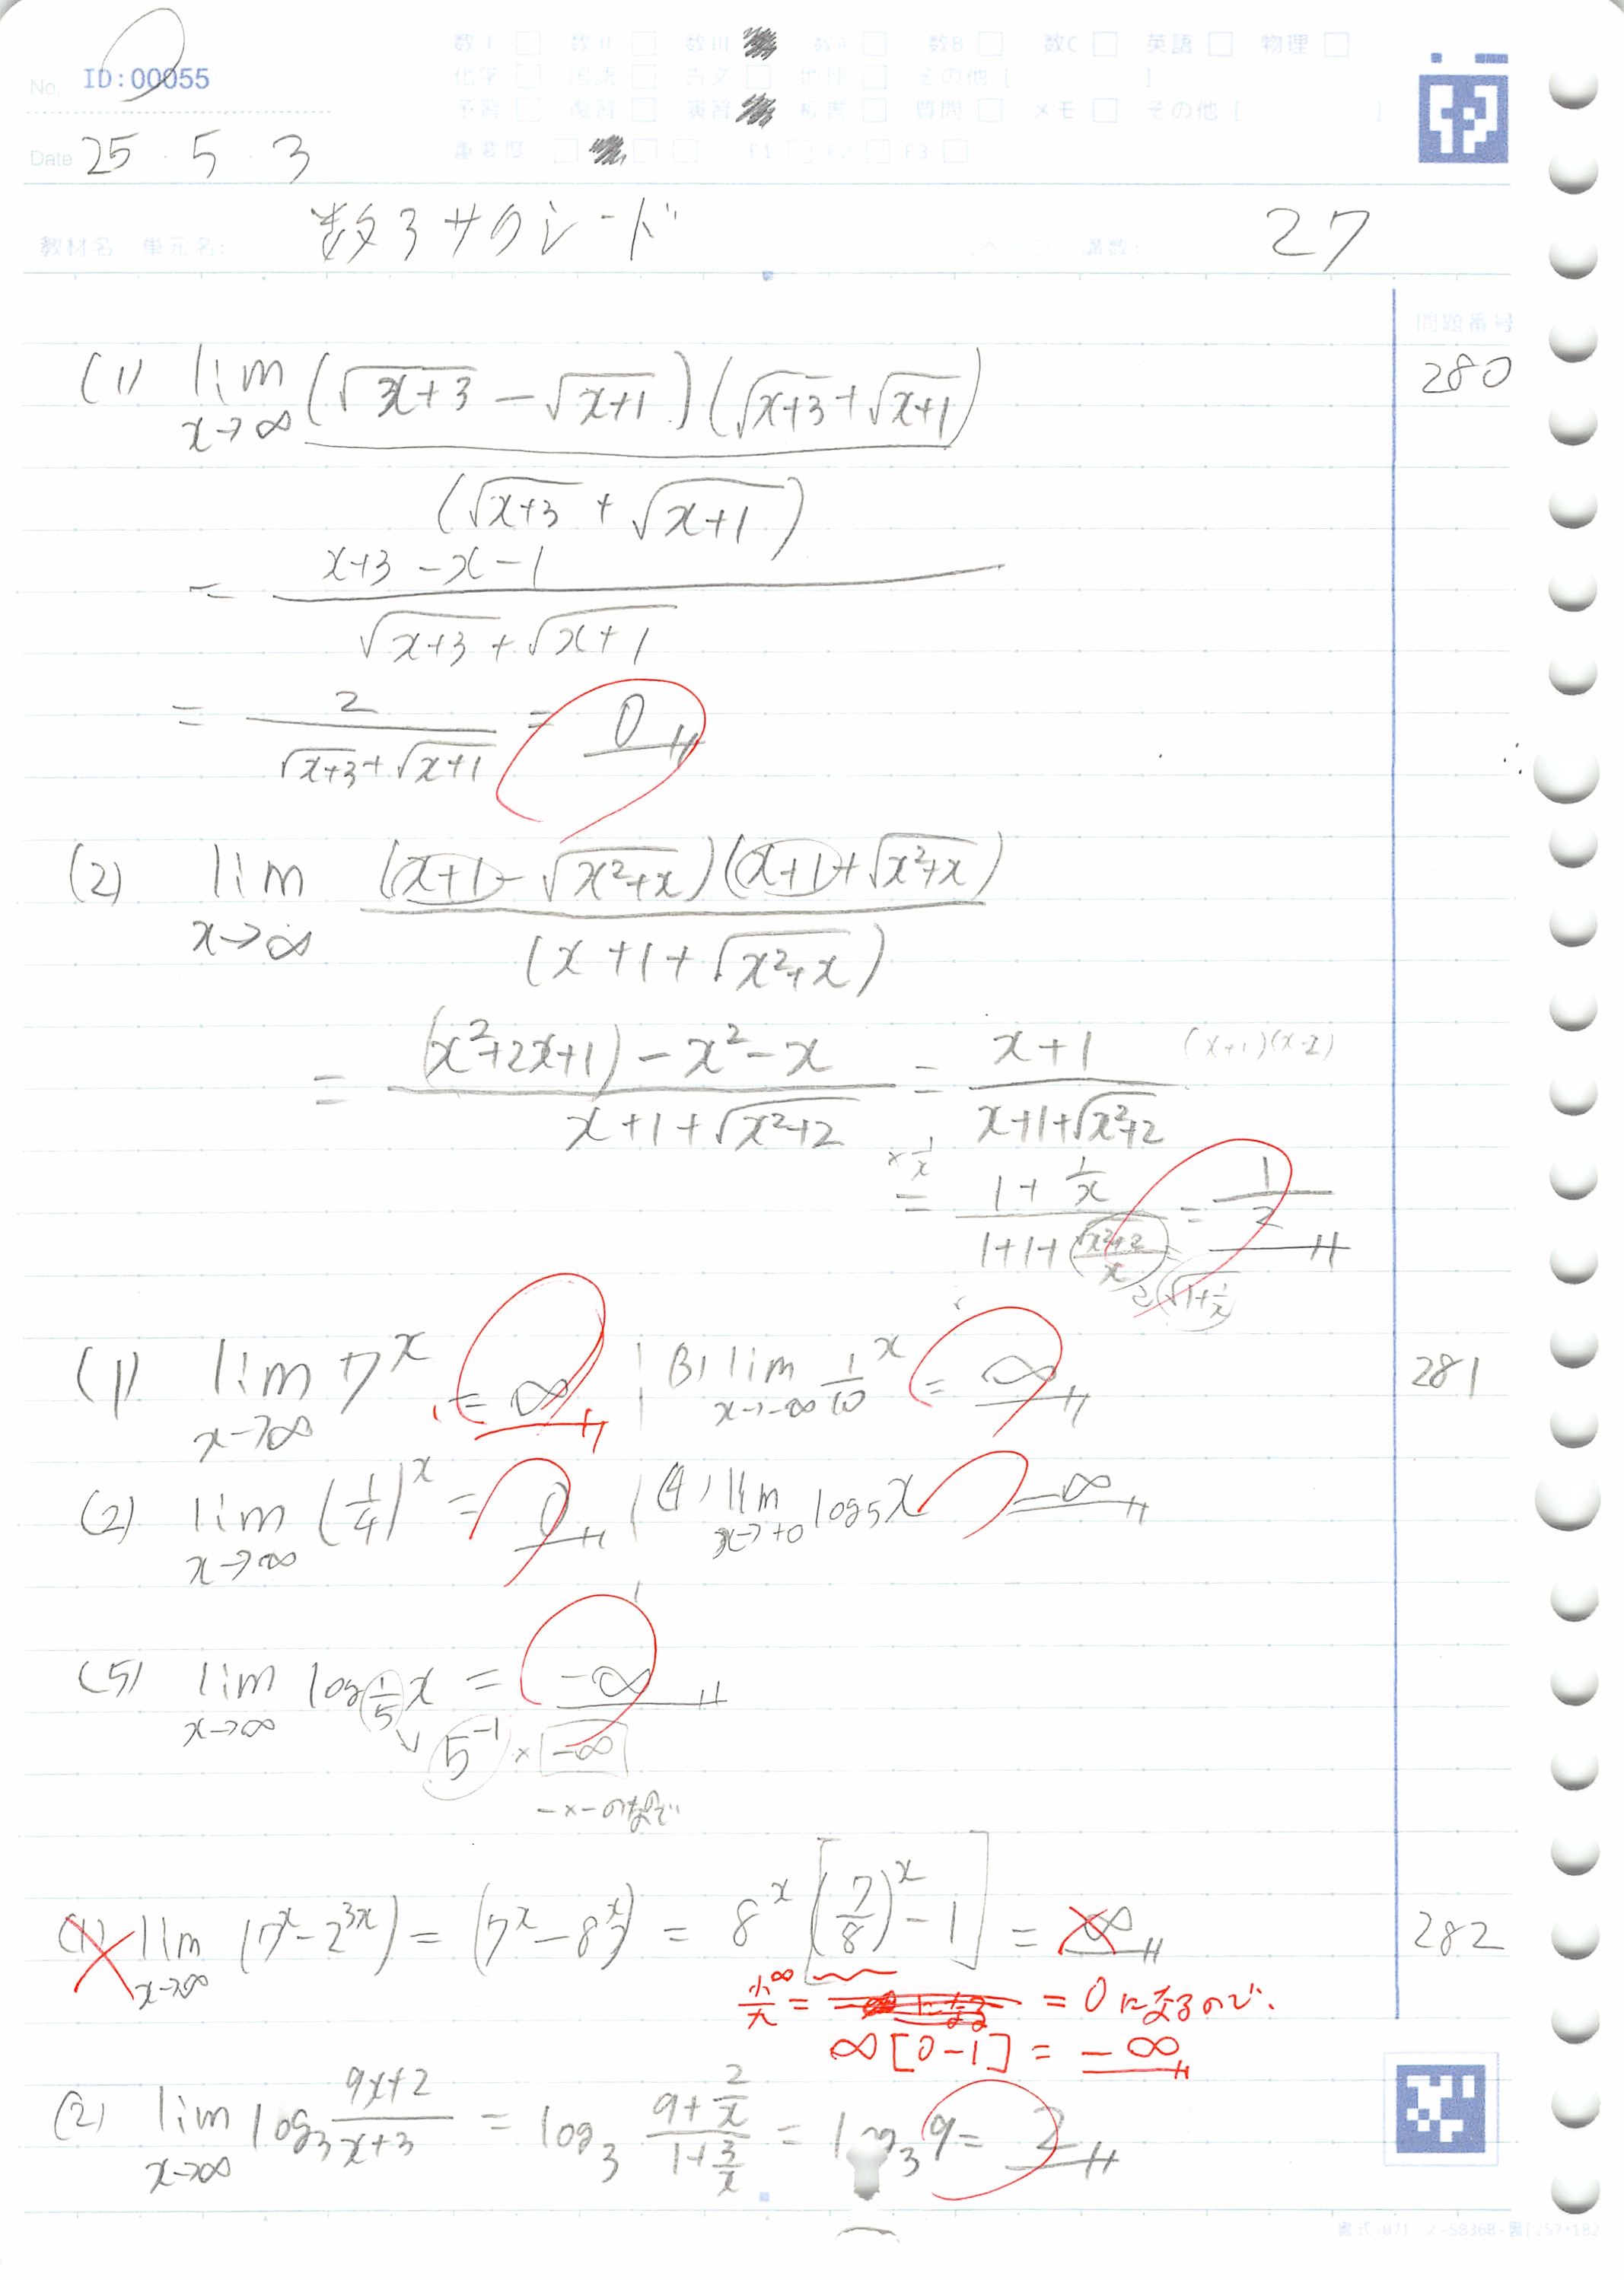 数I □ 数II □ 数III 数A □ 数B □ 数C □ 英語 □ 物理 □
No. ID:00055
化学 □ 国語 □ 古文 □ 地理 □ その他 [ ]
予習 □ 復習 □ 演習 板書 □ 質問 □ メモ □ その他 [ ]
Date 25・5・3
重要度 □ □ □ F1 □ F2 □ F3 □
教材名・単元名: 数3サクシード ページ・講数: 27
問題番号
280
(1) lim x→∞ (√x+3 − √x+1)(√x+3 + √x+1)
(√x+3 + √x+1)
= x+3−x−1 / √x+3 + √x+1
= 2 / √x+3 + √x+1 = 0
(2) lim x→∞ (x+1−√x²+x)(x+1+√x²+x)
(x+1+√x²+x)
= (x²+2x+1)−x²−x / x+1+√x²+2 = x+1 / x+1+√x²+2 (x+1)(x-2)
×1/x
= 1+1/x / 1+1+√x²+2/x = 1/2
2 √1+1/x
281
(1) lim x→∞ 7^x = ∞ (3) lim x→−∞ 1/10^x = ∞
(2) lim x→∞ (1/4)^x = 0 (4) lim x→+0 log₅x −∞
(5) lim x→∞ log 1/5 x = −∞
5⁻¹ × −∞
−×−のなので
282
(1) lim x→∞ (7^x−2^3x) = (7^x−8^x) = 8^x[(7/8)^x−1] = ∞
小/大^∞ = = 0になるので.
∞[0−1] = −∞
(2) lim x→∞ log₃ 9x+2/x+3 = log₃ 9+2/x / 1+3/x = log₃9 = 2
書式:071 ノ-S836B-裏(257*182